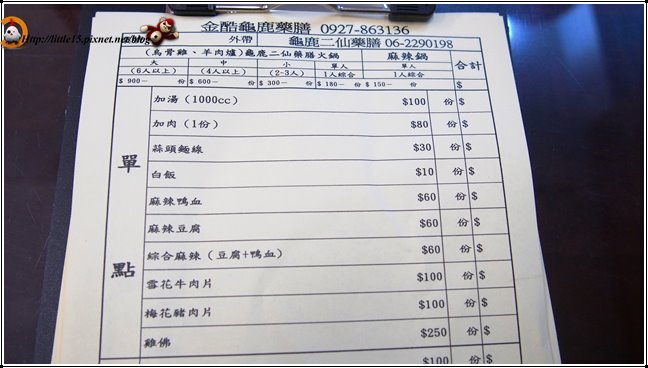 Http://little15.pixnet.net/blog
金酷龜鹿藥膳 0927-863136
外帶 龜鹿二仙藥膳 06-2290198
(烏骨雞、羊肉爐)龜鹿二仙藥膳火鍋 麻辣鍋 合計
大 中 小 單人 單人
(6人以上) (4人以上) (2-3人) 1人綜合 1人綜合
$ 900- 份 $ 600- 份 $ 300- 份 $ 180- 份 $ 150- 份 $
單點
加湯(1000cc) $100 份 $
加肉(1份) $80 份 $
蒜頭麵線 $30 份 $
白飯 $10 份 $
麻辣鴨血 $60 份 $
麻辣豆腐 $60 份 $
綜合麻辣(豆腐+鴨血) $60 份 $
雪花牛肉片 $100 份 $
梅花豬肉片 $100 份 $
雞佛 $250 份 $
$100 份 $